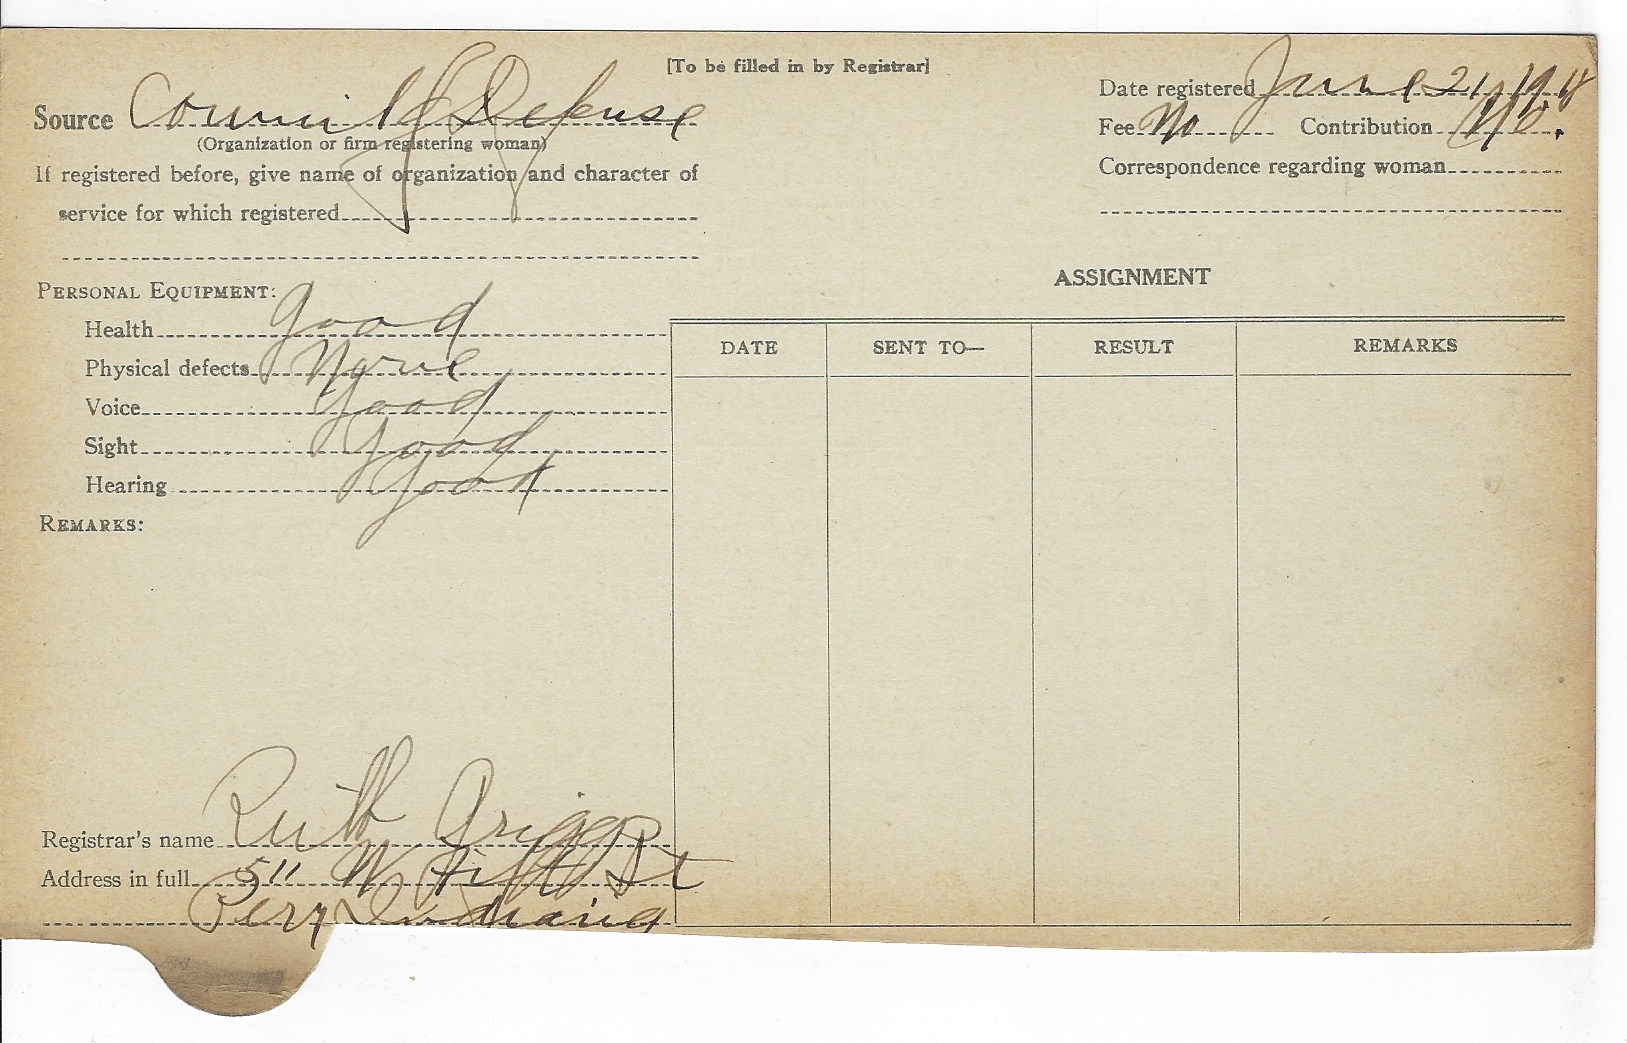 [To be filled in by Registrar]
Source Council of Defense
(Organization or firm registering woman)
If registered before, give name of organization and character of
service for which registered
Date registered June 21, 1918
Fee No Contribution No.
Correspondence regarding woman
PERSONAL EQUIPMENT:
Health good
Physical defects None
Voice good
Sight good
Hearing good
REMARKS:
ASSIGNMENT
DATE SENT TO— RESULT REMARKS
Registrar's name Ruth Griggs
Address in full 511 W Fifth St
Peru Indiana